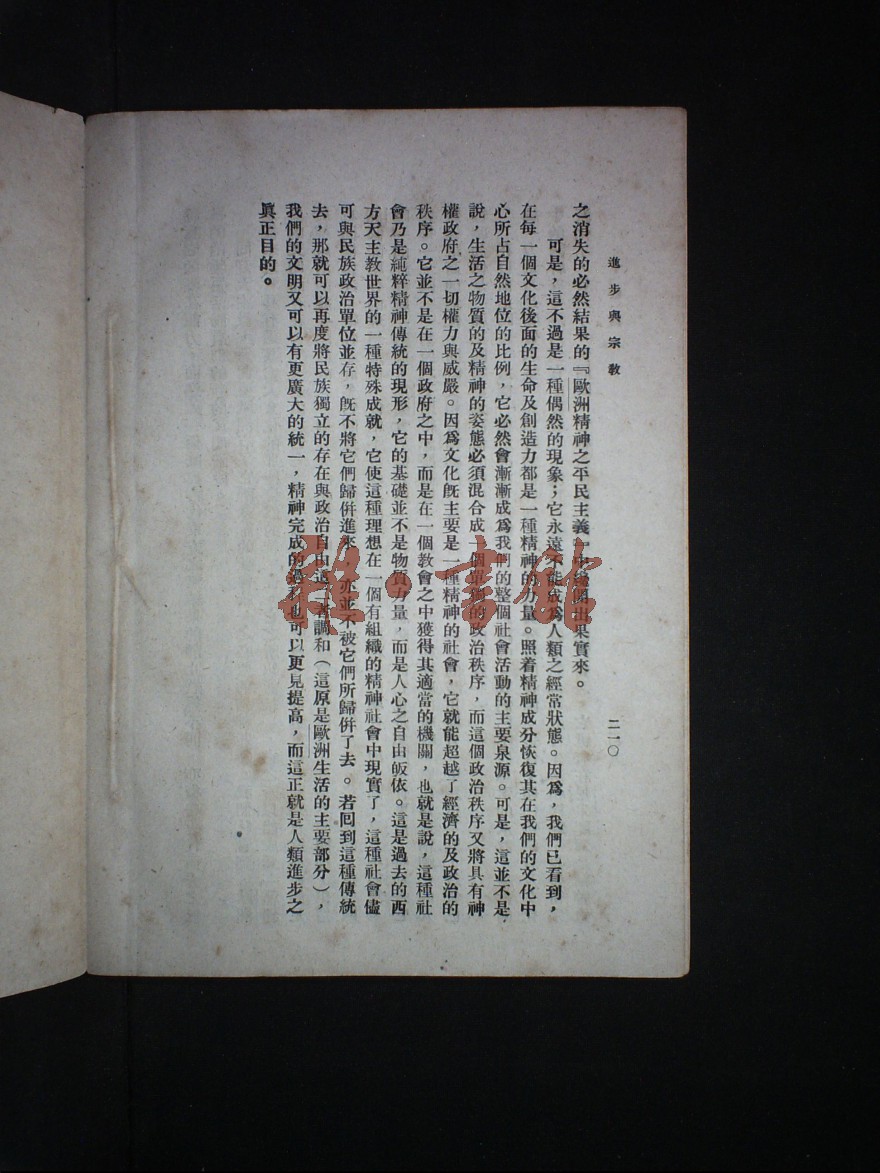 進步與宗教
二一〇
之消失的必然結果的『歐洲精神之平民主義』中
出果實來。
可是，這不過是一種偶然的現象；它永遠不能成爲人類之經常狀態。因爲，我們已看到，
在每一個文化後面的生命及創造力都是一種精神的力量。照着精神成分恢復其在我們的文化中
心所占自然地位的比例，它必然會漸漸成爲我們的整個社會活動的主要泉源。可是，這並不是
說，生活之物質的及精神的姿態必須混合成一個單獨的政治秩序，而這個政治秩序又將具有神
權政府之一切權力與威嚴。因爲文化旣主要是一種精神的社會，它就能超越了經濟的及政治的
秩序。它並不是在一個政府之中，而是在一個教會之中獲得其適當的機關，也就是說，這種社
會乃是純粹精神傳統的現形，它的基礎並不是物質力量，而是人心之自由皈依。這是過去的西
方天主教世界的一種特殊成就，它使這種理想在一個有組織的精神社會中現實了，這種社會儘
可與民族政治單位並存，旣不將它們歸併進來，亦並不被它們所歸併了去。若回到這種傳統
去，那就可以再度將民族獨立的存在與政治自由這二者調和（這原是歐洲生活的主要部分），
我們的文明又可以有更廣大的統一，精神完成的過程也可以更見提高，而這正就是人類進步之
眞正目的。
雅書館